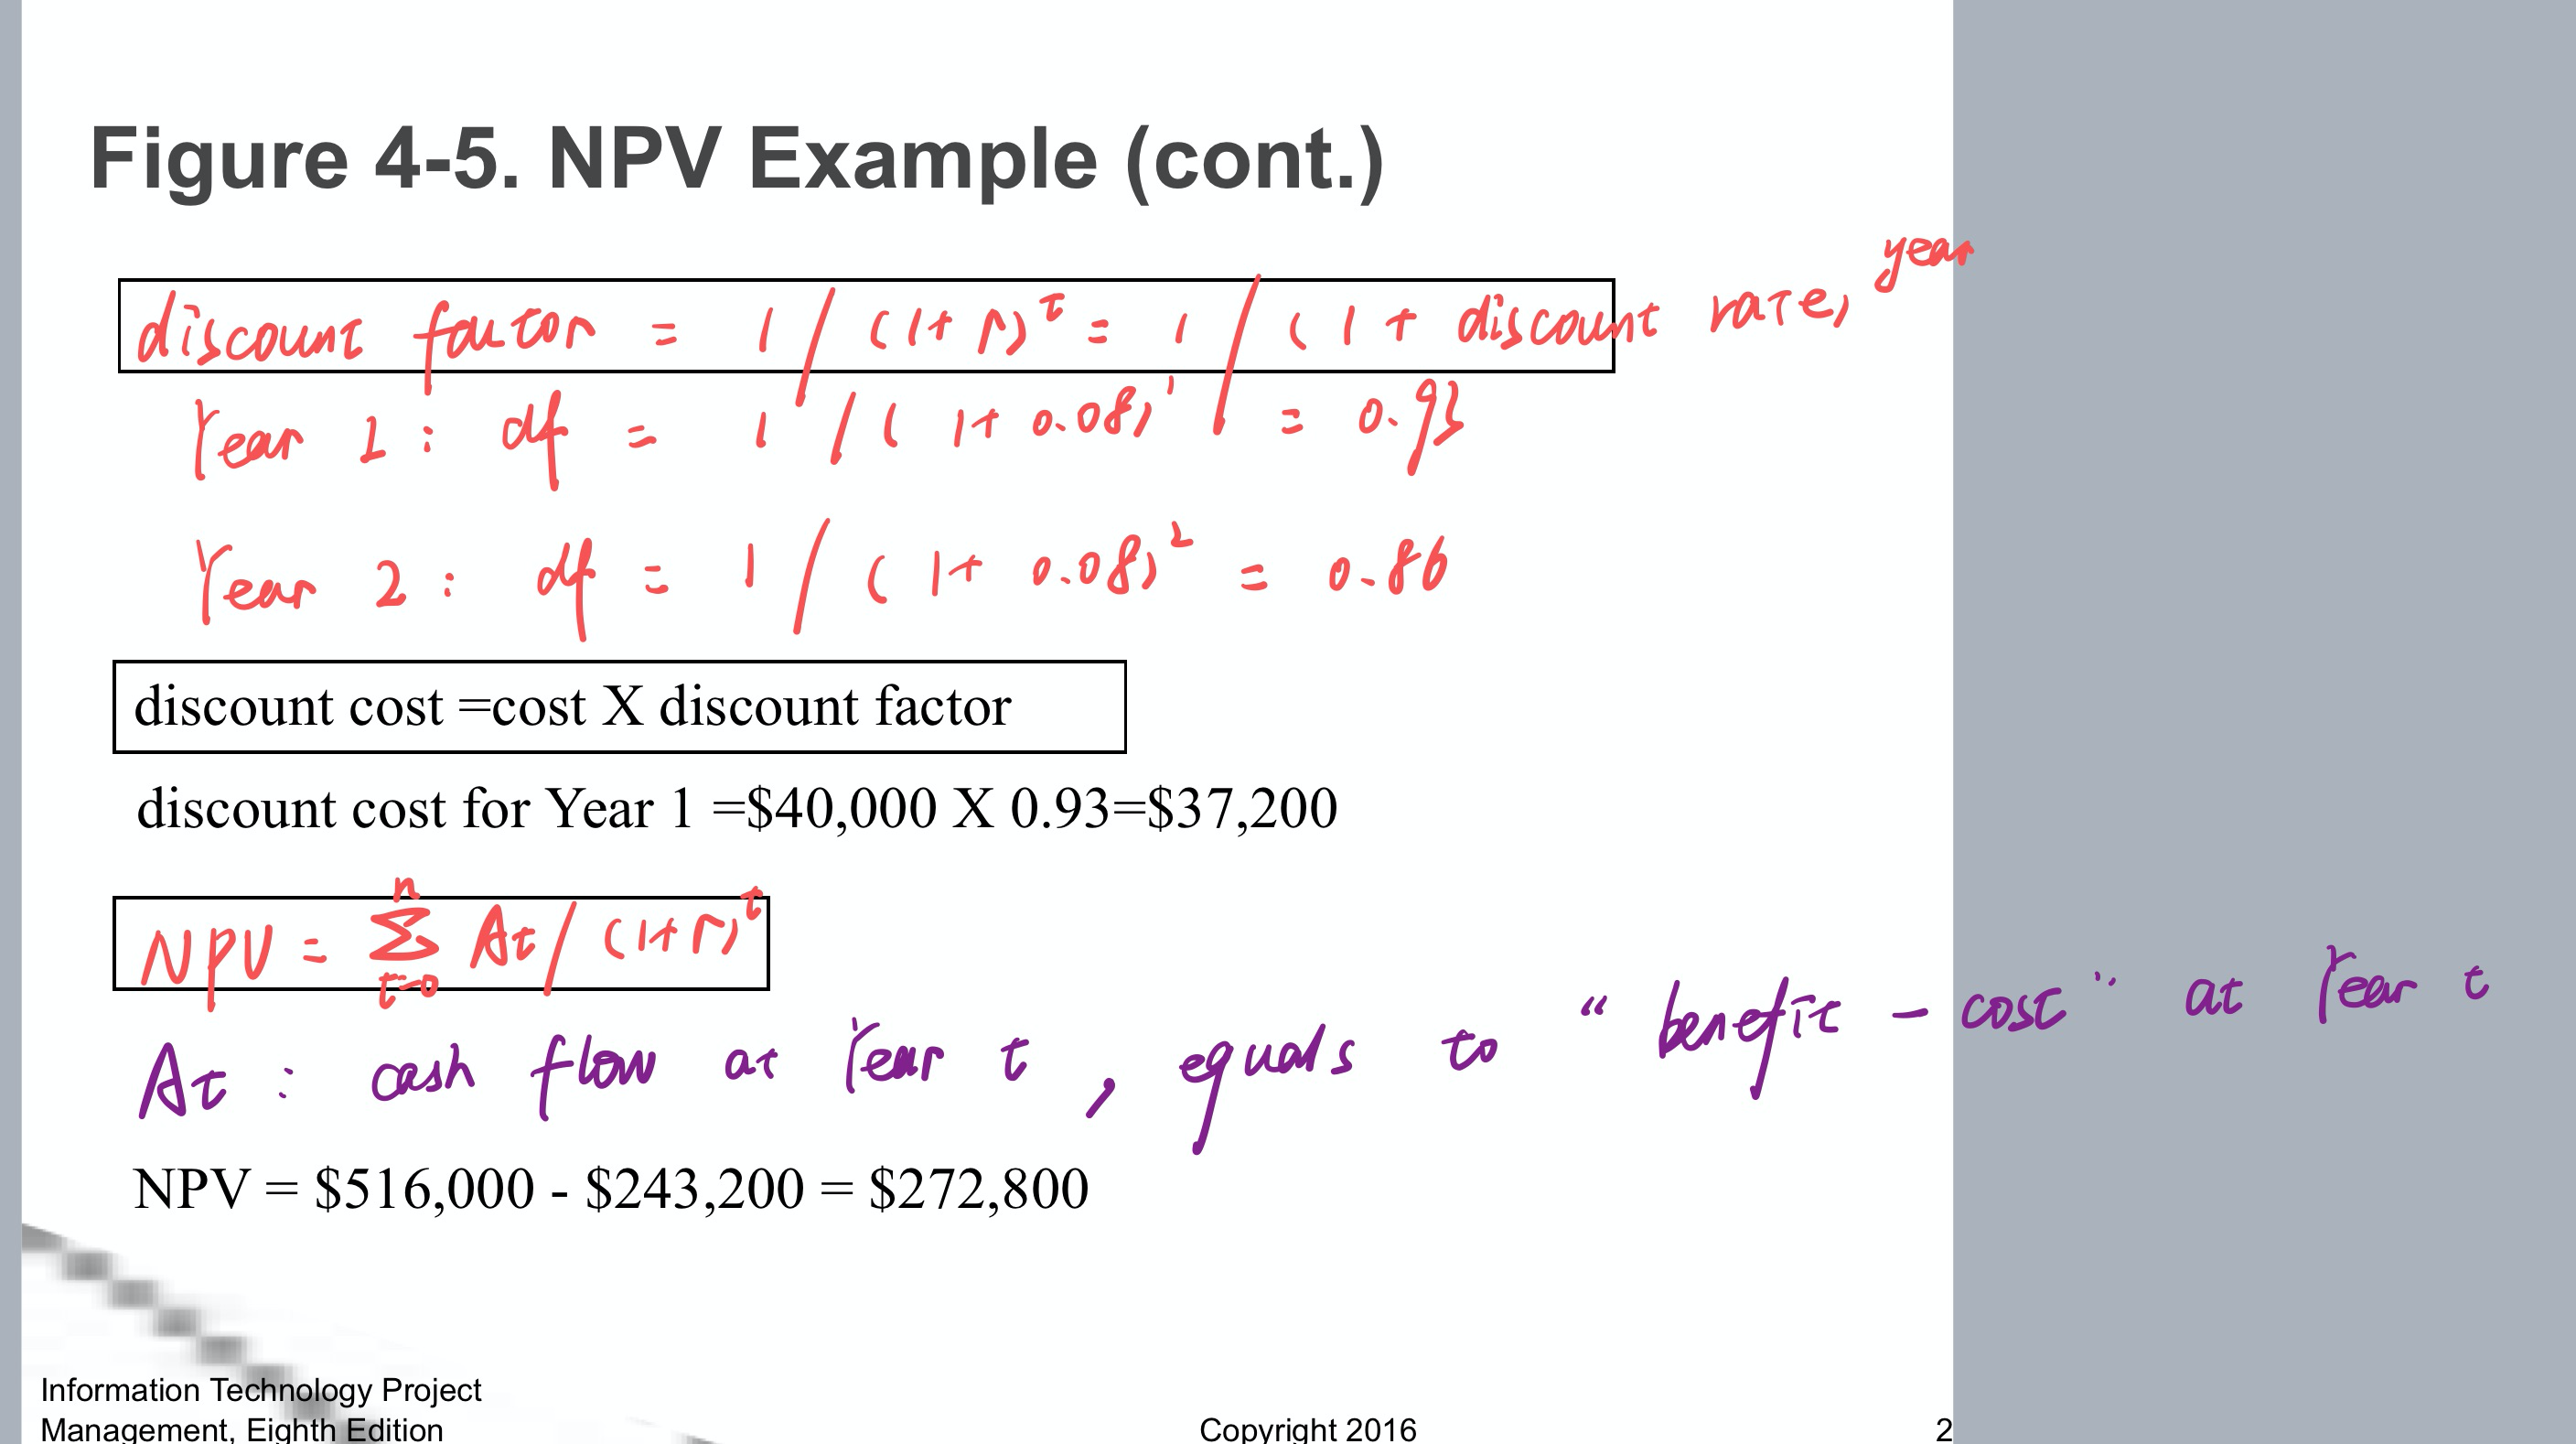 Figure 4-5. NPV Example (cont.)
discount factor = 1 / (1+r)^t = 1 / (1 + discount rate)^year
Year 1 : df = 1 / (1+0.08)^1 = 0.93
Year 2 : df = 1 / (1+0.08)^2 = 0.86
discount cost =cost X discount factor
discount cost for Year 1 =$40,000 X 0.93=$37,200
NPV = Σ_{t=0}^{n} At / (1+r)^t
At : cash flow at Year t , equals to “benefit - cost” at Year t
NPV = $516,000 - $243,200 = $272,800
Information Technology Project
Management, Eighth Edition
Copyright 2016
2